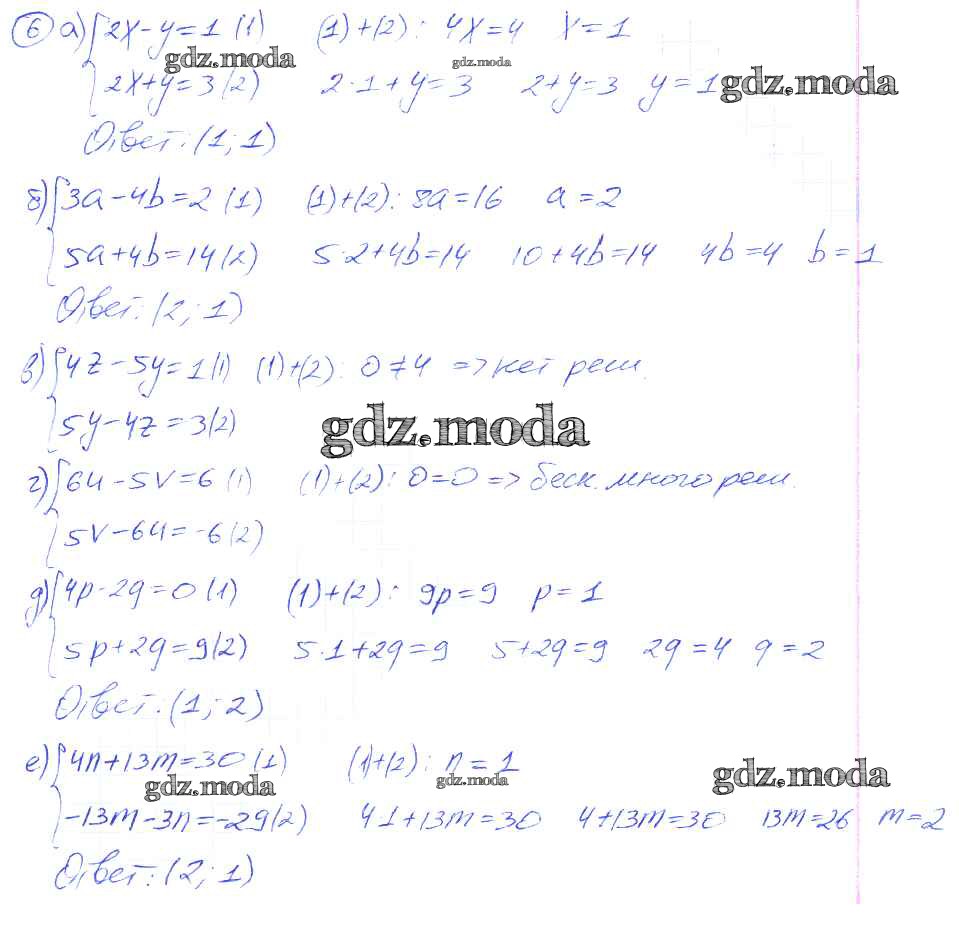 6 а) 2x-y=1 (1) (1)+(2): 4x=4 x=1
2x+y=3 (2) 2·1+y=3 2+y=3 y=1
gdz.moda gdz.moda gdz.moda
Ответ: (1; 1)
б) 3a-4b=2 (1) (1)+(2): 8a=16 a=2
5a+4b=14 (2) 5·2+4b=14 10+4b=14 4b=4 b=1
Ответ: (2; 1)
в) 4z-5y=1 (1) (1)+(2): 0≠4 => нет реш.
5y-4z=3 (2)
gdz.moda
г) 6u-5v=6 (1) (1)+(2): 0=0 => беск. много реш.
5v-6u=-6 (2)
д) 4p-2q=0 (1) (1)+(2): 9p=9 p=1
5p+2q=9 (2) 5·1+2q=9 5+2q=9 2q=4 q=2
Ответ: (1; 2)
е) 4n+13m=30 (1) (1)+(2): n=1
gdz.moda gdz.moda gdz.moda
-13m-3n=-29 (2) 4·1+13m=30 4+13m=30 13m=26 m=2
Ответ: (2; 1)